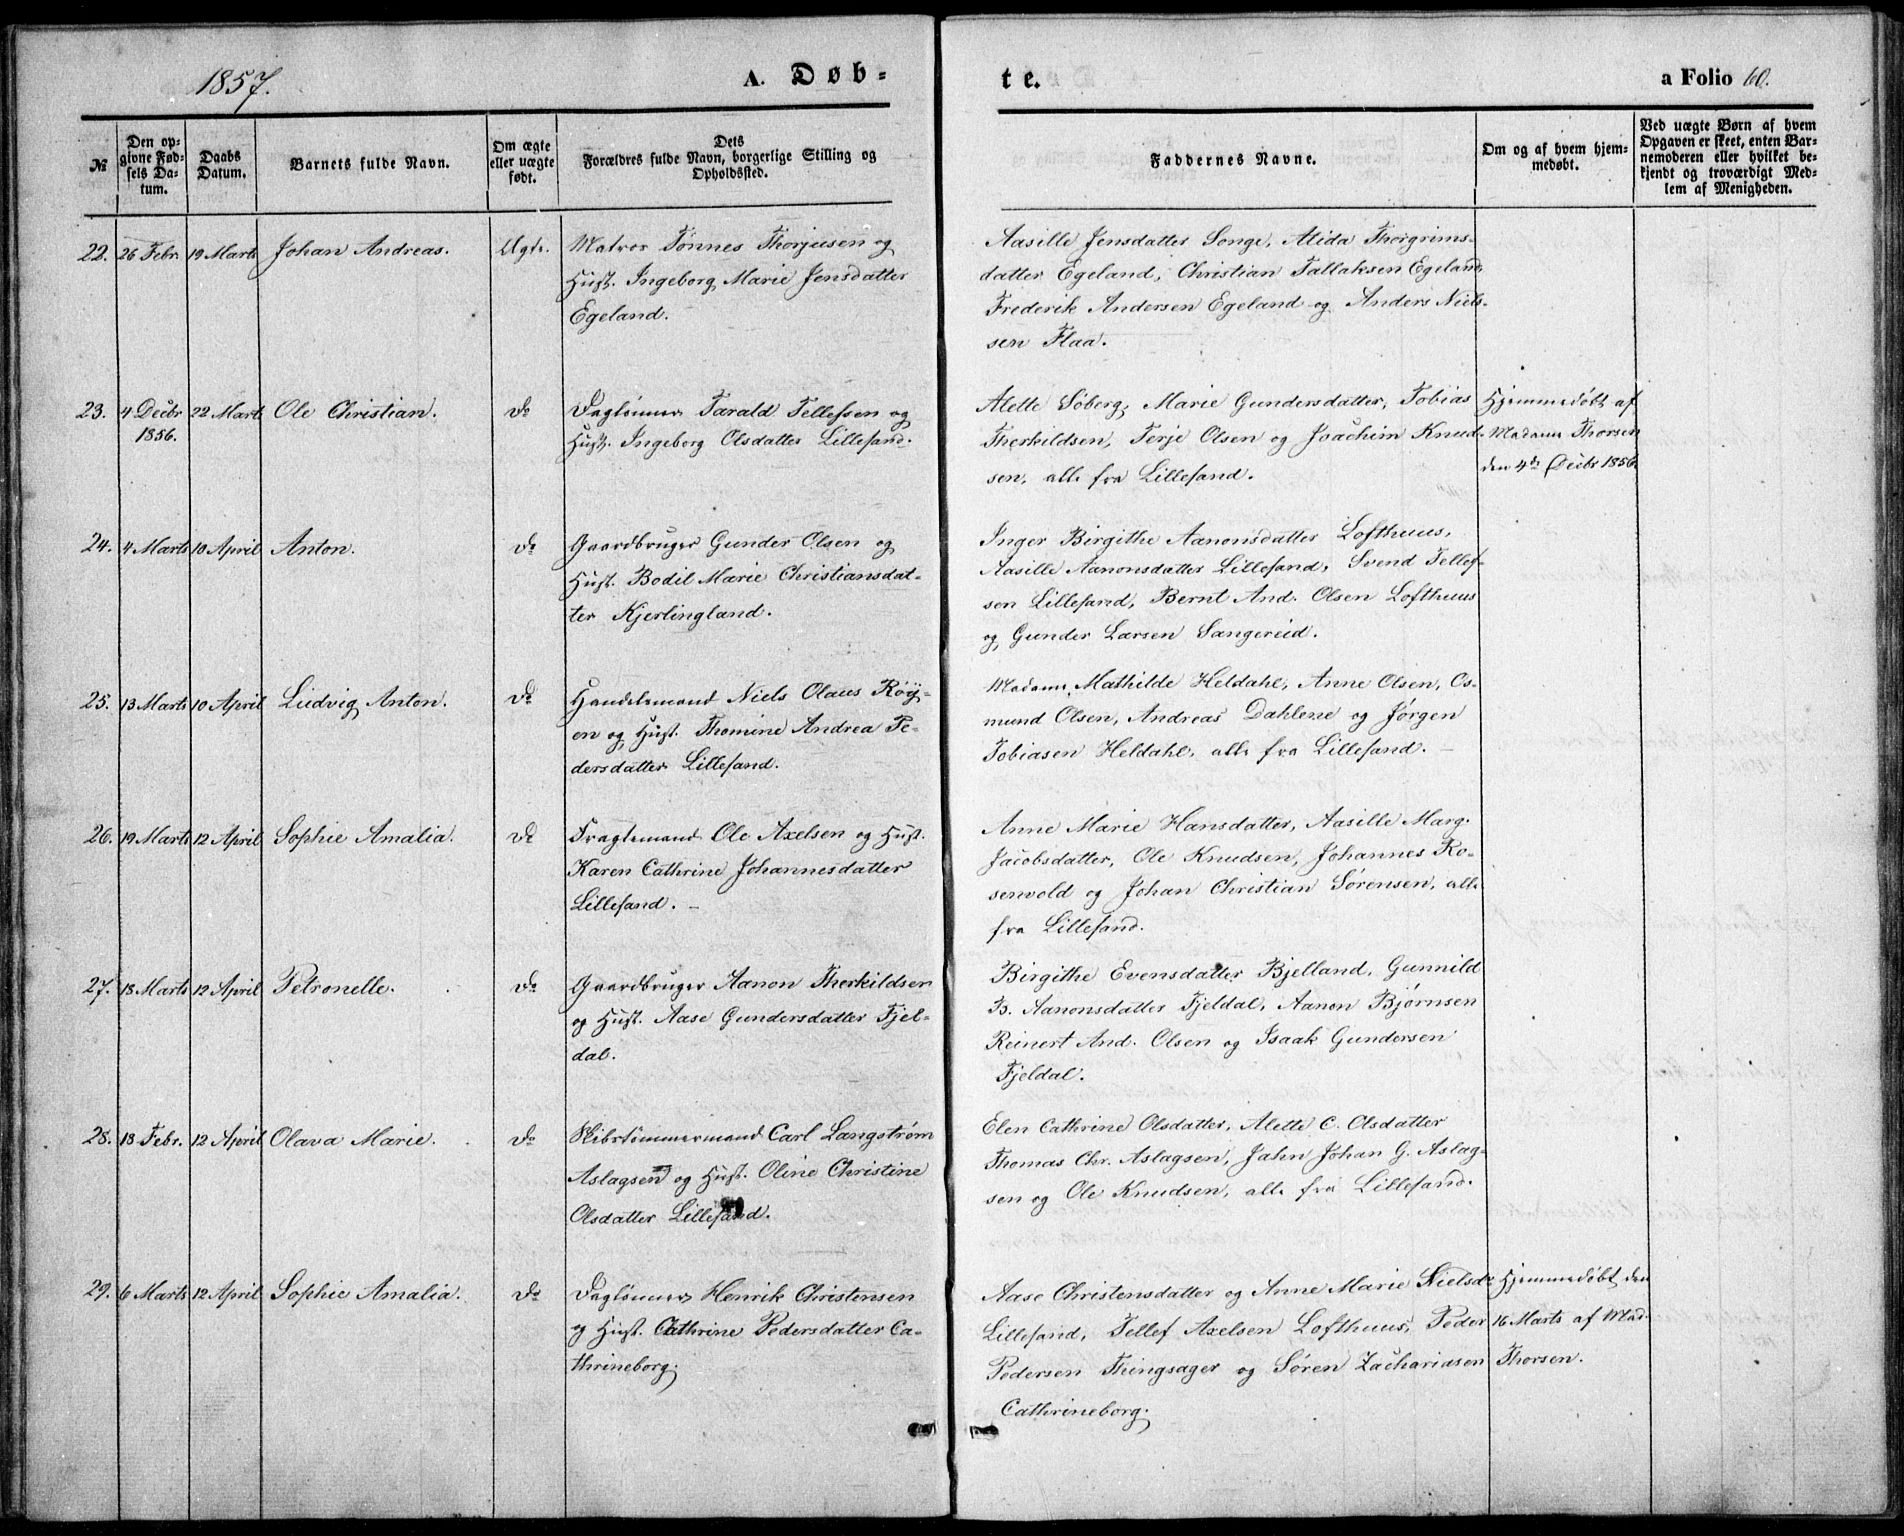 1857.
A. Døb-
te.
a Folio 60.
№
Den op-
givne Fød-
sels Da-
tum.
Daabs
Datum.
Barnets fulde Navn.
Om ægte
eller uægte
født.
Dets
Forældres fulde Navn, borgerlige Stilling og
Opholdssted.
Faddernes Navne.
Om og af hvem hjem-
medøbt.
Ved uægte Børn af hvem
Opgaven er skeet, enten Bar-
nemoderen eller hvilket be-
kjendt og troværdigt Med-
lem af Menigheden.
22. 26 Febr. 19 Marts Johan Andreas. Ægte. Matros Tønnes Thorjusen og
Hust. Ingeborg Marie Jensdatter
Egeland.
Aasille Jensdatter Songe, Alida Thorgrims-
datter Egeland, Christian Tallaksen Egeland,
Frederik Andersen Egeland og Anders Niels-
sen Flaa.
23. 4 Decbr 22 Marts Ole Christian. do Daglønner Tarald Tellefsen og
1856.
Hust. Ingeborg Olsdatter Lillesand.
Alette Søberg, Marie Gundersdatter, Tobias
Therkildsen, Terje Olsen og Joachim Knud-
sen, alle fra Lillesand.
Hjemmedøbt af
Madame Thorsen
den 4de Decbr 1856.
24. 4 Marts 10 April Anton. do Gaardbruger Gunder Olsen og
Hust. Bodil Marie Christiansdat-
ter Kjerlingland.
Inger Birgithe Aanonsdatter Lofthuus,
Aasille Aanonsdatter Lillesand, Svend Tellef-
sen Lillesand, Bernt And. Olsen Lofthuus
og Gunder Larsen Sangereid.
25. 13 Marts 10 April Ludvig Anton. do Handelsmand Niels Olaus Røy-
en og Hust. Thomine Andrea Pe-
dersdatter Lillesand.
Madame Mathilde Heldahl, Anne Olsen, Os-
mund Olsen, Andreas Dahlene og Jørgen
Tobiasen Heldahl, alle fra Lillesand. —
26. 19 Marts 12 April Sophie Amalia. do Fragtemand Ole Axelsen og Hust.
Karen Cathrine Johannesdatter
Lillesand. —
Anne Marie Hansdatter, Aasille Marg.
Jacobsdatter, Ole Knudsen, Johannes Ro-
senvold og Johan Christian Sørensen, alle
fra Lillesand.
27. 18 Marts 12 April Petronelle. do Gaardbruger Aanon Therkildsen
og Hust. Aase Gundersdatter Fjel-
dal.
Birgithe Evensdatter Bjelland, Gunnild
B. Aanonsdatter Fjeldal, Aanon Bjørnsen
Reinert And. Olsen og Isaak Gundersen
Fjeldal.
28. 18 Febr. 12 April Olava Marie. do Skibstømmermand Carl Langstrøm
Aslagsen og Hust. Oline Christine
Olsdatter Lillesand.
Elen Cathrine Olsdatter, Alette C. Olsdatter
Thomas Chr. Aslagsen, Jahn Johan G. Aslag-
sen og Ole Knudsen, alle fra Lillesand.
29. 6 Marts 12 April Sophie Amalia. do Daglønner Henrik Christensen
og Hust. Cathrine Pedersdatter Ca-
thrineborg.
Aase Christensdatter og Anne Marie Nielsdr
Lillesand, Tellef Axelsen Lofthuus, Peder
Pedersen Thingsager og Søren Zachariasen
Cathrineborg.
Hjemmedøbt den
16 Marts af Mad.
Thorsen.